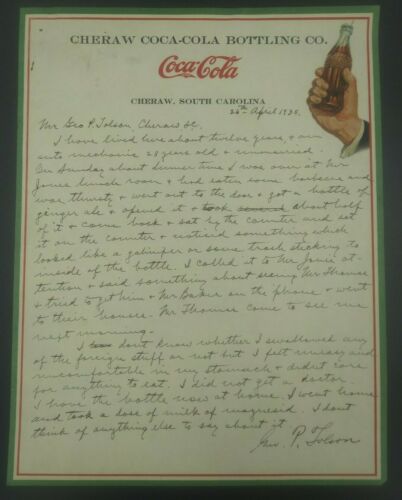 CHERAW COCA-COLA BOTTLING CO.
Coca-Cola
CHERAW, SOUTH CAROLINA
26th April 1935.
Mr Geo P. Tolson, Cheraw SC.
I have lived here about twelve years & am
auto mechanic 28 years old & unmarried.
On Sunday about dinner time I was over at Mr
Jones lunch room & had eaten some barbecue and
was thirsty & went out to the box & got a bottle of
ginger ale & opened it & took about half
of it & came back & sat by the counter and set
it on the counter & noticed something which
looked like a galniper or some trash sticking to
inside of the bottle. I called it to Mr Jones at-
tention & said something about seeing Mr Thomas
& tried to get him & Mr Baker on the phone & went
to their houses. Mr Thomas came to see me
next morning.
I dont know whether I swallowed any
of the foreign stuff or not but I felt nuseay and
uncomfortable in my stomach & didnt care
for anything to eat. I did not get a doctor.
I have the bottle now at home. I went home
and took a dose of milk of magnesia. I dont
think of anything else to say about it.
Geo. P. Tolson